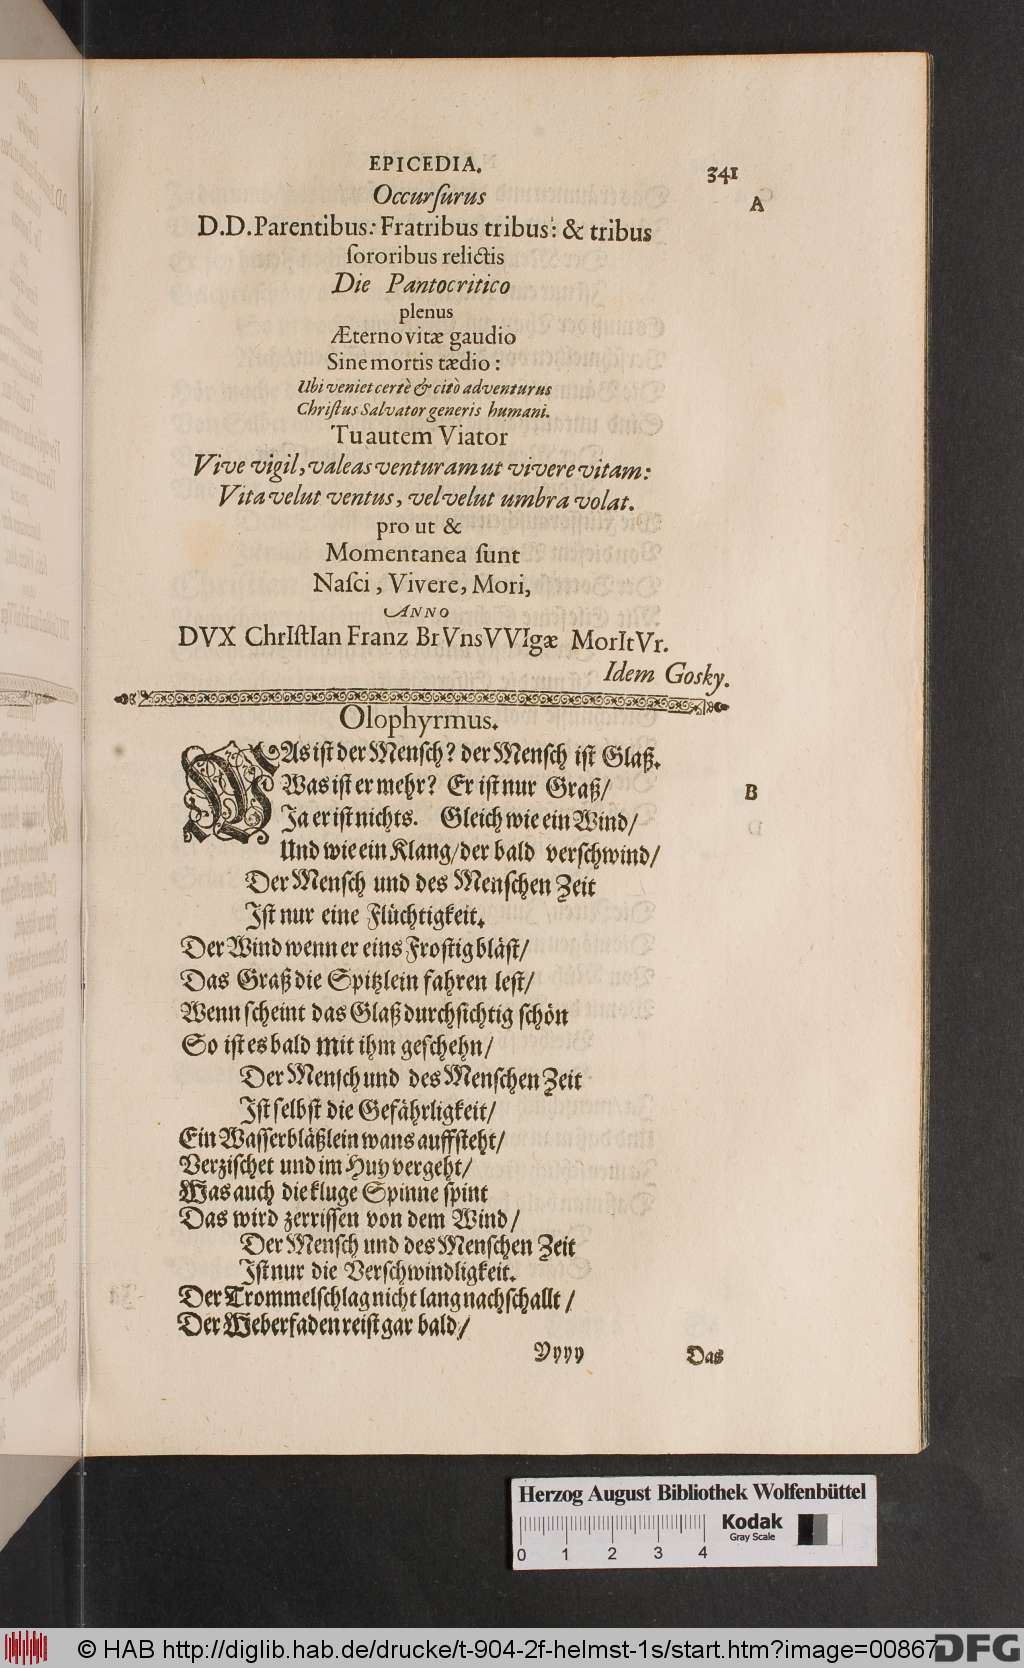 EPICEDIA. 341
Occurſurus
A
D.D.Parentibus: Fratribus tribus: & tribus
ſororibus relictis
Die Pantocritico
plenus
Æterno vitæ gaudio
Sine mortis tædio:
Ubi veniet certè & citò adventurus
Chriſtus Salvator generis humani.
Tu autem Viator
Vive vigil, valeas venturam ut vivere vitam:
Vita velut ventus, vel velut umbra volat.
pro ut &
Momentanea ſunt
Naſci, Vivere, Mori,
ANNO
DVX ChrIſtIan Franz BrVnsVVIgæ MorItVr.
Idem Gosky.
Olophyrmus.
WAs iſt der Menſch? der Menſch iſt Glaß.
Was iſt er mehr? Er iſt nur Graß/
B
Ja er iſt nichts. Gleich wie ein Wind/
Und wie ein Klang/der bald verſchwind/
Der Menſch und des Menſchen Zeit
Iſt nur eine Flüchtigkeit.
Der Wind wenn er eins Froſtig bläſt/
Das Graß die Spitzlein fahren leſt/
Wenn ſcheint das Glaß durchſichtig ſchön
So iſt es bald mit ihm geſchehn/
Der Menſch und des Menſchen Zeit
Iſt ſelbſt die Gefährligkeit/
Ein Waſſerbläßlein wans auffſteht/
Verziſchet und im Huy vergeht/
Was auch die kluge Spinne ſpint
Das wird zerriſſen von dem Wind/
Der Menſch und des Menſchen Zeit
Iſt nur die Verſchwindligkeit.
Der Trommelſchlag nicht lang nachſchallt/
Der Weberfaden reiſt gar bald/
Vyyy Das
Herzog August Bibliothek Wolfenbüttel
Kodak
Gray Scale
0 1 2 3 4
© HAB http://diglib.hab.de/drucke/t-904-2f-helmst-1s/start.htm?image=00867
DFG